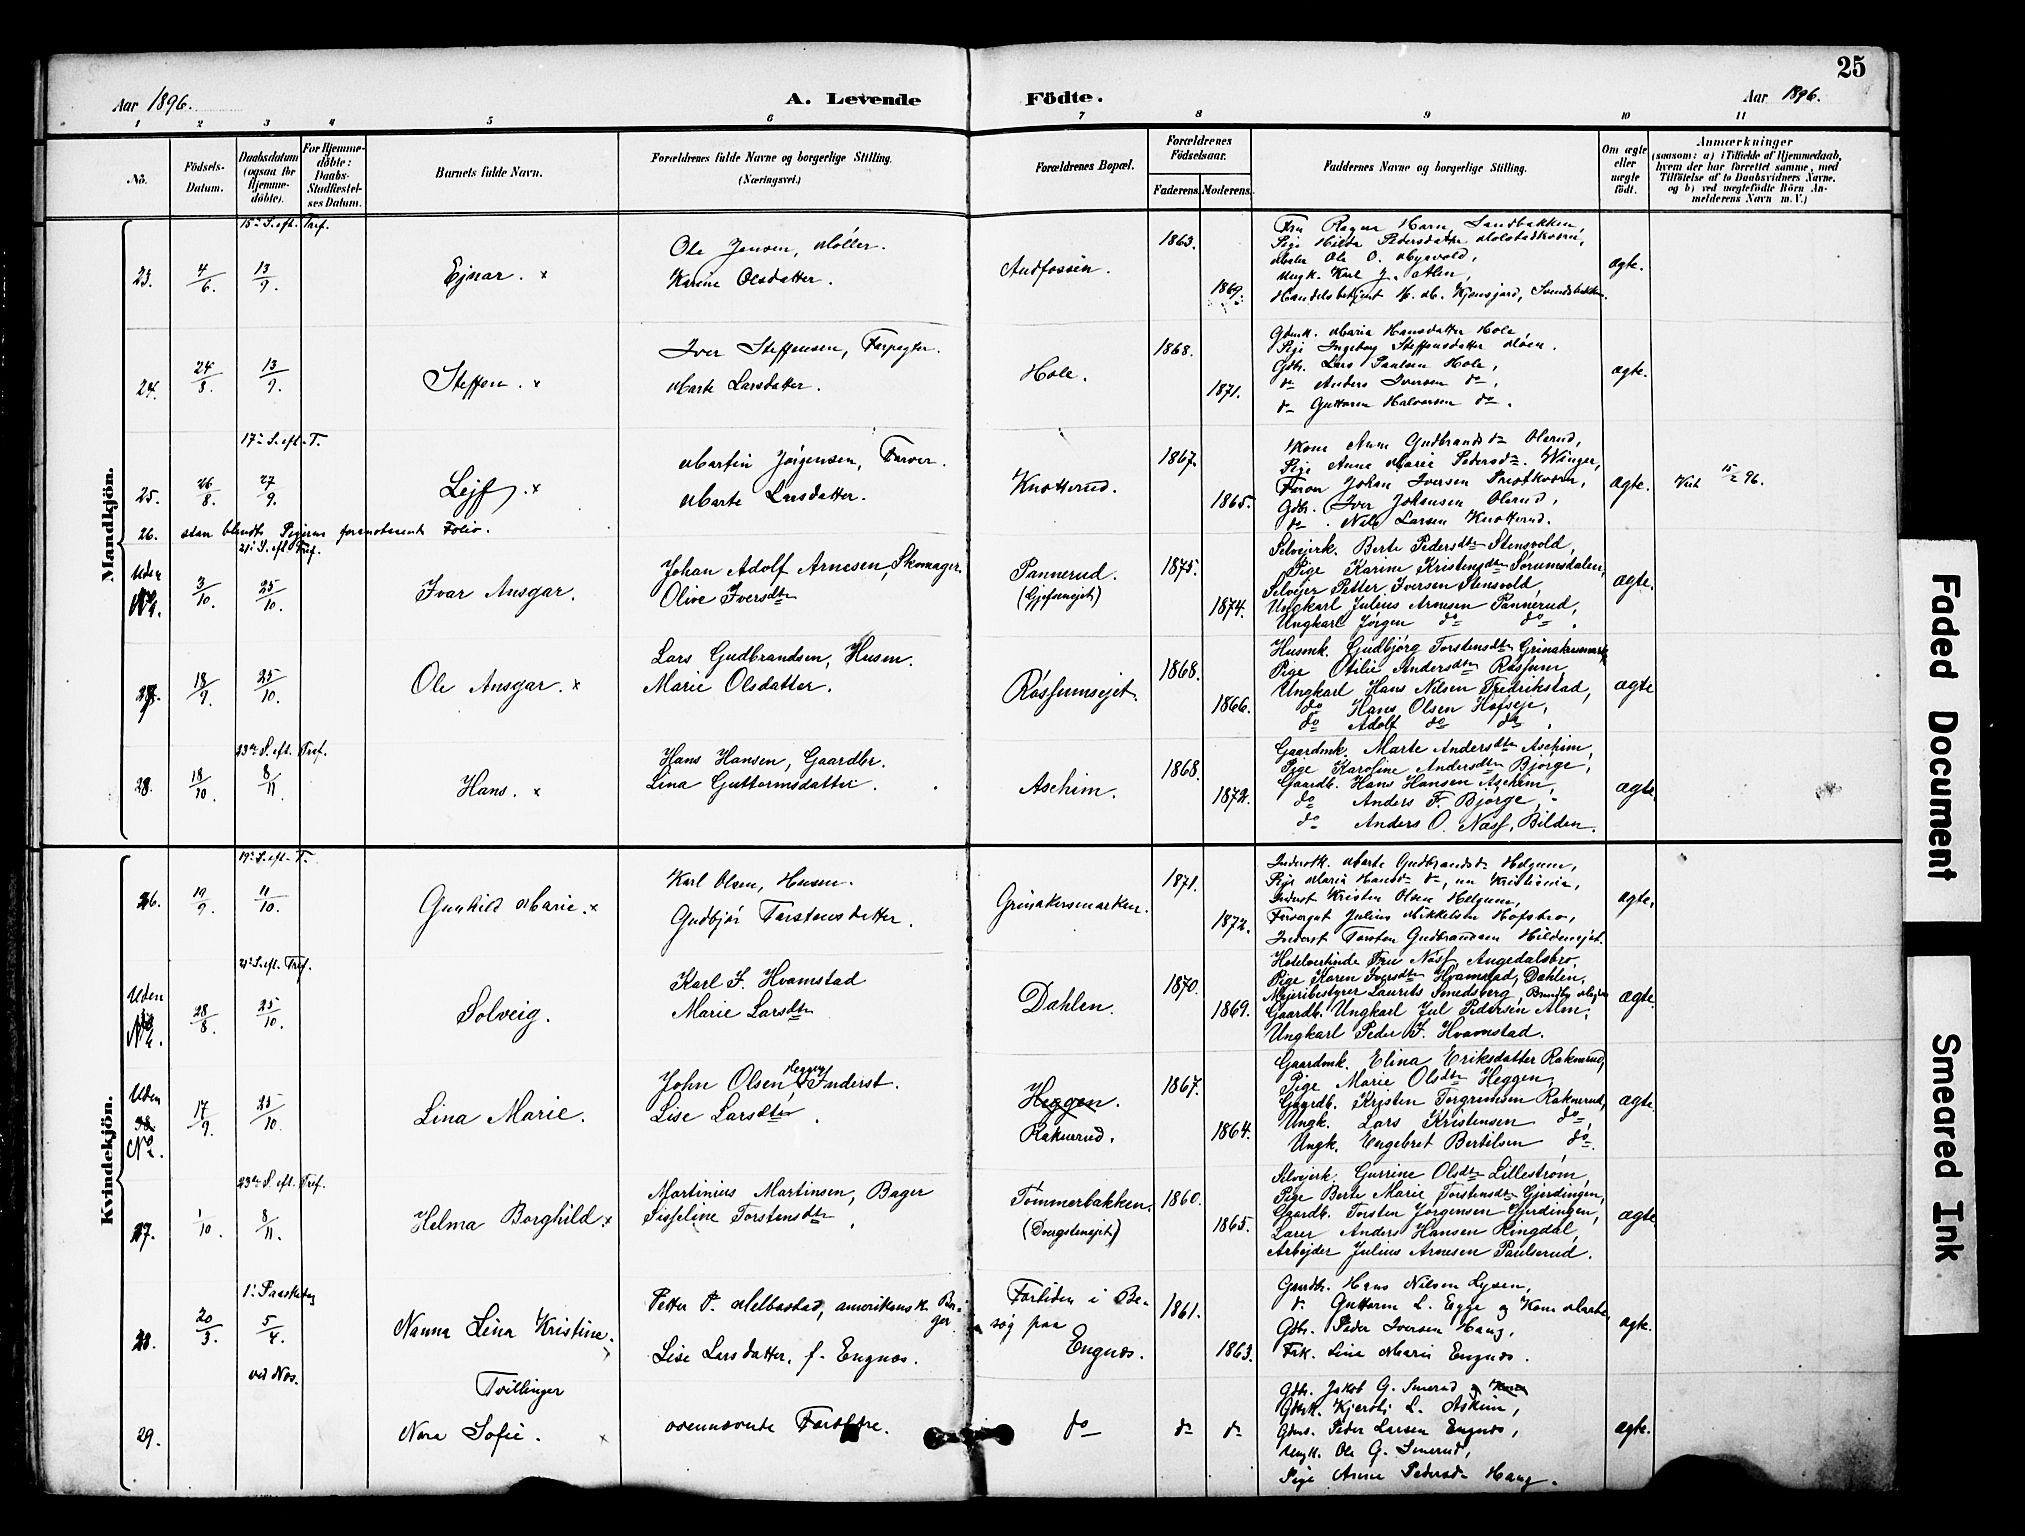 25
Aar 1896.
A. Levende Födte.
Aar 1896.
1 2 3 4 5 6 7 8 9 10 11
No.
Födsels-Datum.
Daabsdatum (ogsaa for Hjemmedöbte).
For Hjemmedöbte: Daabs-Stadfæstelses Datum.
Barnets fulde Navn.
Forældrenes fulde Navne og borgerlige Stilling. (Næringsvei.)
Forældrenes Bopæl.
Forældrenes Födselsaar.
Faderens. Moderens.
Faddernes Navne og borgerlige Stilling.
Om ægte eller uægte födt.
Anmærkninger
(saasom: a) i Tilfælde af Hjemmedaab, hvem der har forrettet samme, med Tilföielse af to Daabsvidners Navne, og b) ved uægtefödte Börn Anmelderens Navn m. V.)
Mandkjön.
15de S. eft. Tref.
23. 4/6 13/9 Ejnar. x
Ole Jensen, Møller.
Karine Olsdatter.
Audfossen.
1863. 1869.
Fru Ragna Horn, Sandbakken,
Pige Hilda Pedersdatter Molstadkvern,
Ole O. Mysvold,
Ungk. Karl J. Alm,
ægte.
24. 24/8 13/9 Steffen. x
Iver Steffensen, Forpagter.
Marte Larsdatter.
Hole.
1868. 1871.
Gdmk. Maria Hansdatter Hole,
Pige Ingeborg Steffensdatter Moen.
Gdb. Lars Paulsen Hole,
do Anders Iversen do,
do Guttorm Halvorsen do.
ægte.
17de S. eft. T.
25. 26/8 27/9 Lejf. x
Martin Jørgensen, Farver.
Marte Larsdatter.
Knotterud.
1867. 1865.
Kone Anne Gudbrandsd. Olerud,
Pige Anna Marie Pedersd. Winger,
Farver Johan Iversen Prestkvern,
Gdb. Iver Johansen Olerud,
do. Nils Larsen Knotterud.
ægte.
15/2 96.
26. staar blandt Pigerne foranstaaende Folio.
21de S. eft. Tref.
Uden No. 3/10 25/10 Ivar Ansgar.
Johan Adolf Arnesen, Skomager.
Olive Iversdtr
Pannerud.
(Gjefseneiet)
1875. 1874.
Selvejerk. Berte Pedersdtr Stensvold,
Pige Karine Kristensdtr Sørumsdalen,
Selvejer Petter Iversen Stensvold,
Ungkarl Julius Arnesen Pannerud,
Ungkarl Jørgen do do.
ægte.
27. 18/9 25/10 Ole Ansgar. x
Lars Gudbrandsen, Husm.
Marie Olsdatter.
Røssumsejet.
1868. 1866.
Husmk. Gudbjørg Torstensdtr Grinakersmark,
Pige Otilie Andersdtr Røssum,
Ungkarl Hans Nilsen Fredrikstad,
do Hans Olsen Hofseje,
do Adolf do do.
ægte
23de S. eft. Tref.
28. 18/10 8/11 Hans. x
Hans Hansen, Gaardbr.
Lina Guttormsdatter.
Aschim.
1868. 1872.
Gaardmk. Marte Andersdtr Aschim,
Pige Karoline Andersdtr Bjørge,
Gaardb. Hans Hansen Aschim,
do Anders F. Bjørge,
do Anders O. Næss, Bilden.
ægte.
Kvindekjön.
19de S. eft. T.
26. 19/9 11/10 Gunhild Marie. x
Karl Olsen, Husm.
Gudbjør Torstensdatter.
Grinakersmarken.
1871. 1872.
Inderstk. Marte Gudbrandsd. Helgum,
Pige Maria Hansd. do, nu Kristiania,
Inderst Kristen Olsen Helgum,
Forvergut Julius Mikkelsen Hofsbro,
Inderst Torsten Gudbrandsen Hildenejet.
ægte.
21de S. eft. Tref.
Uden No. 28/8 25/10 Solveig.
Karl I. Hvamstad
Marie Larsdtr
Dahlen.
1870. 1869.
Hotelvertinde Fru Næss Augedalsbro,
Pige Karen Iversdtr Hvamstad, Dahlen,
Mejeribestyrer Laurits Smedsberg, Brandbu Mejeri
Gaardb. Ungkarl Jul Pedersen Alm,
Ungkarl Peder I. Hvamstad.
ægte.
Uden No. 17/9 25/10 Lina Marie.
John Olsen Heggen, Inderst.
Lise Larsdtr.
Heggen.
Raknerud.
1867. 1864.
Gaardmk. Elina Eriksdatter Raknerud,
Pige Marie Olsdtr Heggen,
Gaardb. Kristen Torgrimsen Raknerud,
Ungk. Lars Kristensen do,
Ungk. Engebret Bertilsen do.
ægte.
23de S. eft. Tref.
27. 1/10 8/11 Helma Borghild x
Martinius Martinsen, Bager
Sisseline Torstensdtr.
Tømmerbakken.
(Dvergstenejet)
1860. 1865.
Selvejerk. Gurine Olsdtr Lillestrøm,
Pige Berte Marie Torstensdr Gjerdingen,
Gaardb. Torsten Jørgensen Gjerdingen,
Lærer Anders Hansen Ringdal,
Arbejder Julius Arnesen Paulserud.
ægte
1. Paaskedag
28. 20/3 5/4 Nanna Lina Kristine.
ved Næs.
Petter P. Melbostad, amerikansk Borger
Lise Larsdatter, f. Engnæs.
Fortiden i Besøg paa
Engnæs.
1861. 1863.
Gaardbr. Hans Nilsen Lysen,
do Guttorm L. Egge og Kone Marthe
Gdbr. Peder Iversen Haug,
Frk. Lina Marie Engnæs.
ægte.
29. Tvillinger
Nora Sofie. x
ovennævnte Forældre.
do do do
Gdbr. Jakob G. Smerud og Kone
Gdmk. Kjersti L. Askim,
Gdms. Peder Larsen Engnæs,
Ungk. Ole G. Smerud,
Pige Anne Pedersd. Haug.
ægte.
Faded Document
Smeared Ink